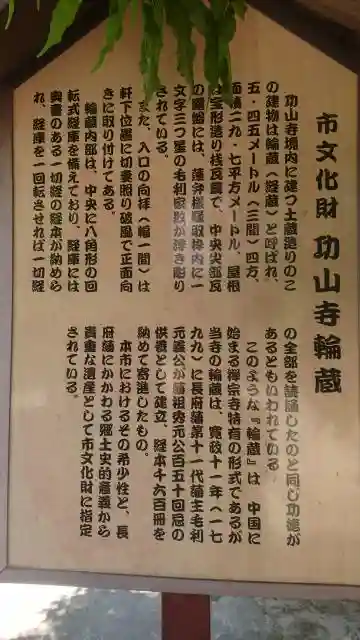 市文化財 功山寺輪蔵
功山寺境内に建つ土蔵造りのこ
の建物は輪蔵（経蔵）と呼ばれ、
五・四五メートル（三間）四方、
面積二九・七平方メートル、屋根
は宝形造り桟瓦葺で、中央尖部瓦
の露盤には、蓮弁様種取枠内に一
文字三つ星の毛利家紋が浮き彫り
されている。
また、入口の向拝（幅一間）は
軒下位置に切妻照り破風で正面向
きに取り付けてある。
輪蔵内部は、中央に八角形の回
転式経庫を備えており、経庫には
奥書のある一切経の経本が納めら
れ、経庫を一回転させれば一切経
の全部を読誦したのと同じ功徳が
あるともいわれている
このような『輪蔵』は、中国に
始まる禅宗寺特有の形式であるが
当寺の輪蔵は、寛政十一年（一七
九九）に長府藩第十一代藩主毛利
元義公が藩祖秀元公百五十回忌の
供養として建立、経本千六百冊を
納めて寄進したもの。
本市におけるその希少性と、長
府藩にかかわる郷土史的意義から
貴重な遺産として市文化財に指定
されている。